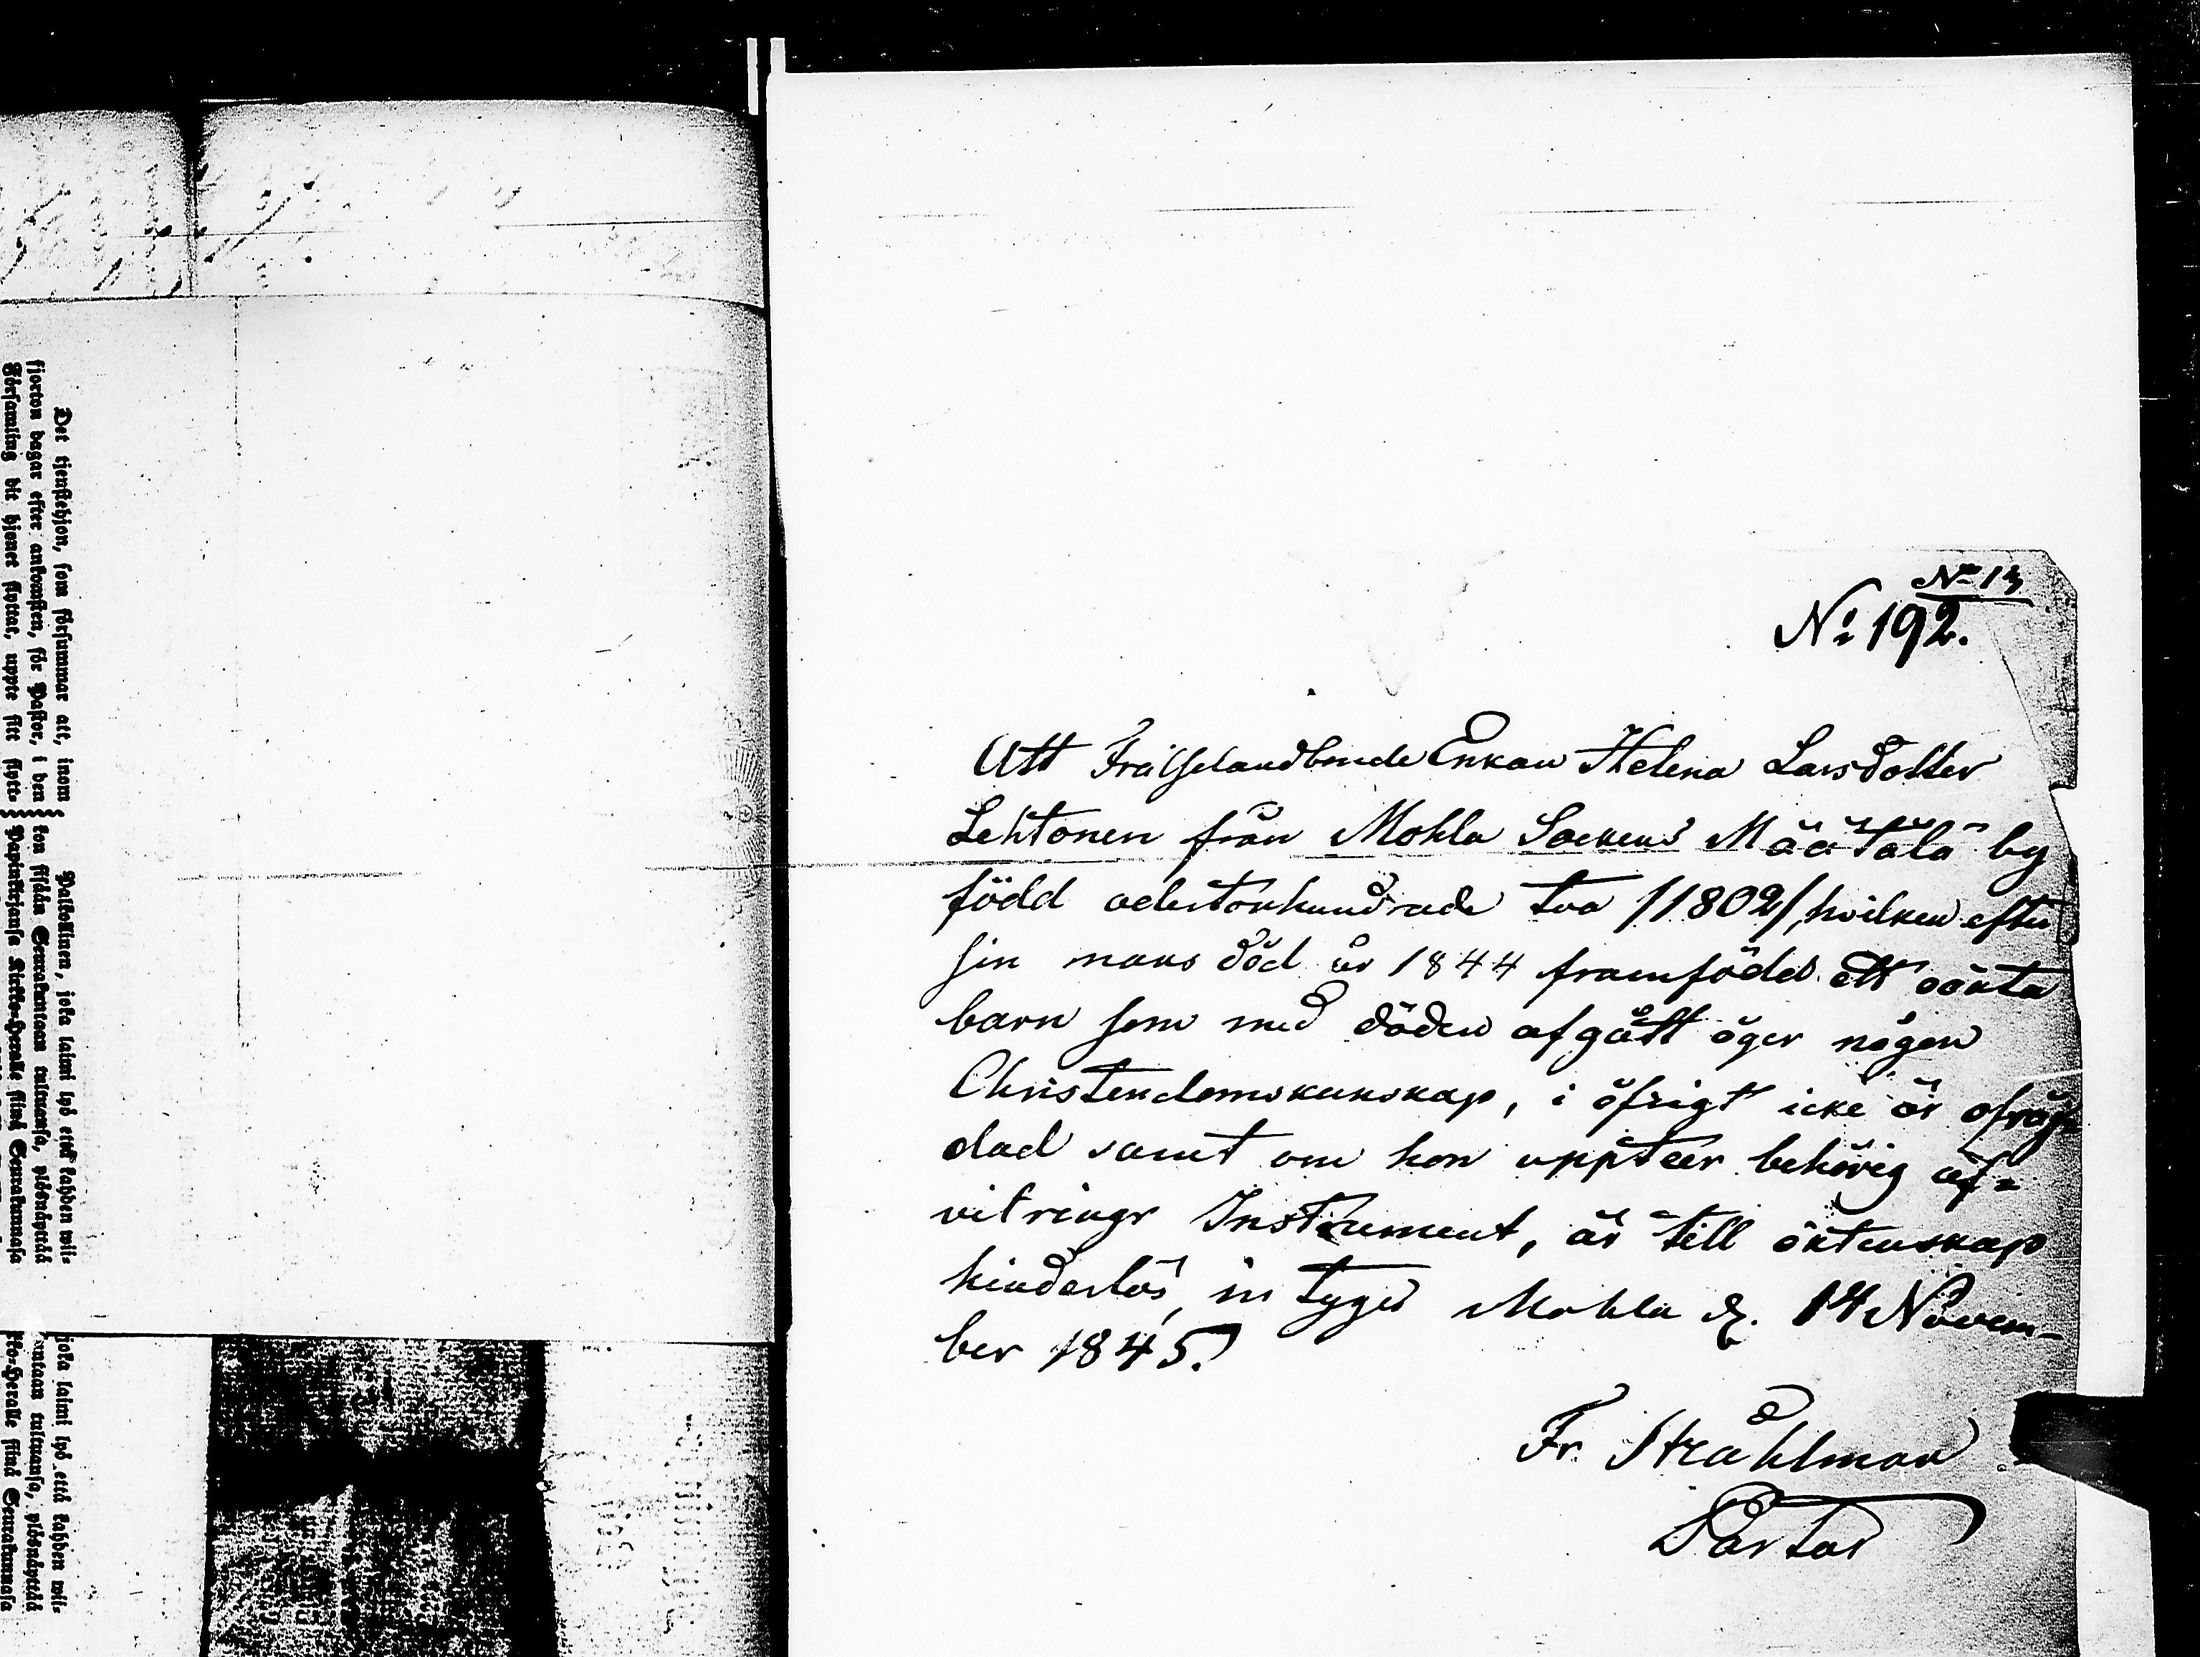 Det tjenstehjon, som försummar att, inom
fjorton dagar efter ankomsten, för Pastor, i den
Församling dit hjonet flyttat, uppte sitt flytt=
Palkollinen, joka laimi lyö että kahden wii=
kon sisään Seurakuntaan tultuansa, ylösnäyttää
Papinkirjansa Kirkko-Herralle siinä Seurakunnasa
joka laimi lyö että kahden wii=
kuntaan tultuansa, ylösnäyttää
kko-Herralle siinä Seurakunnasa
No 13
No 192.
Att Frälselandbonde Enkan Helena Larsdotter
Lehtonen från Mohla Sockens Määtälä by
född adertonhundrade två /1802/, hvilken efter
sin mans död år 1844 framfödd ett oäkta
barn som med döden afgått äger någon
Christendomskunskap, i öfrigt icke är ofräj=
dad samt om hon uppteer behörig af=
vitrings Instrument, är till äktenskap
hinderlös, intygas Mohla d. 14 Novem=
ber 1845.
Fr. Stråhlman
Pastor